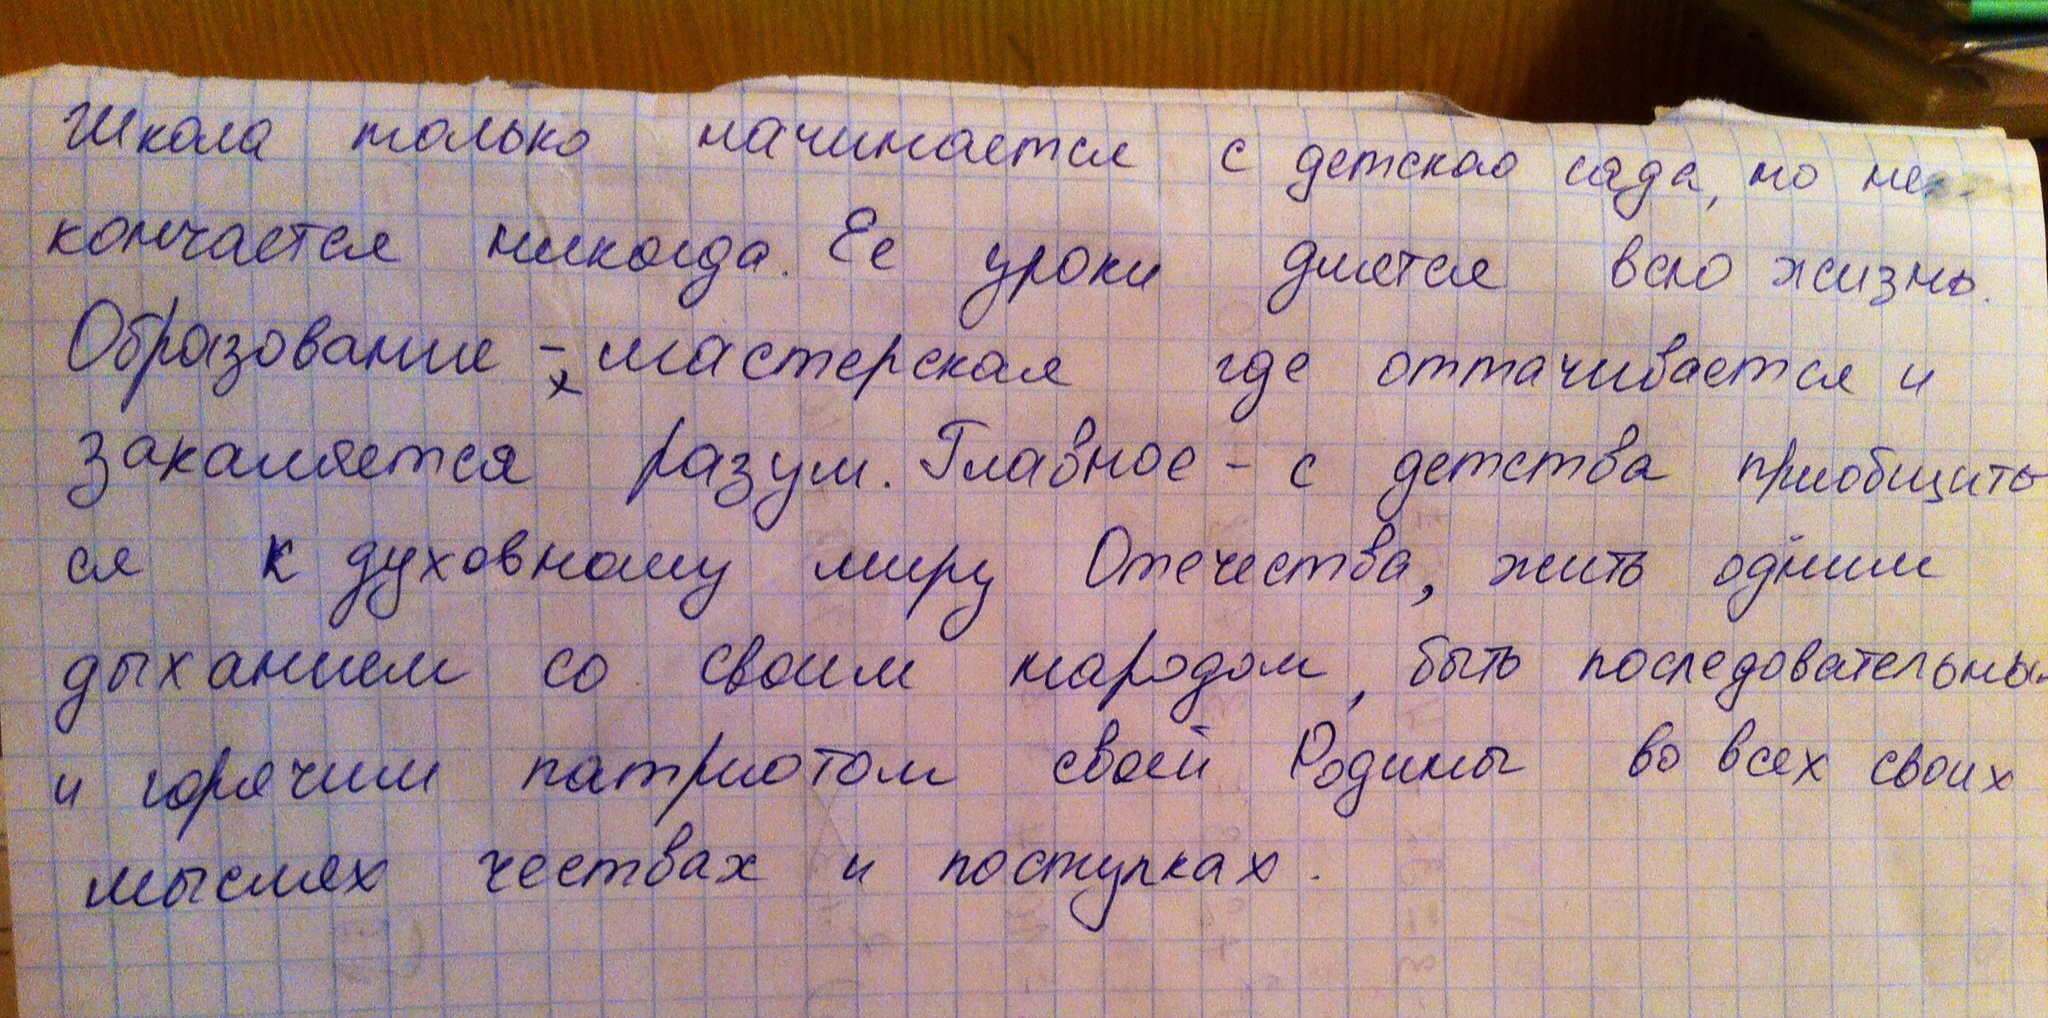 Школа только начинается с детского сада, но не
кончается никогда. Ее уроки длятся всю жизнь.
Образование - мастерская где оттачивается и
закаляется разум. Главное - с детства приобщить
ся к духовному миру Отечества, жить одним
дыханием со своим народом, быть последовательным
и горячим патриотом своей Родины во всех своих
мыслях чествах и поступках.